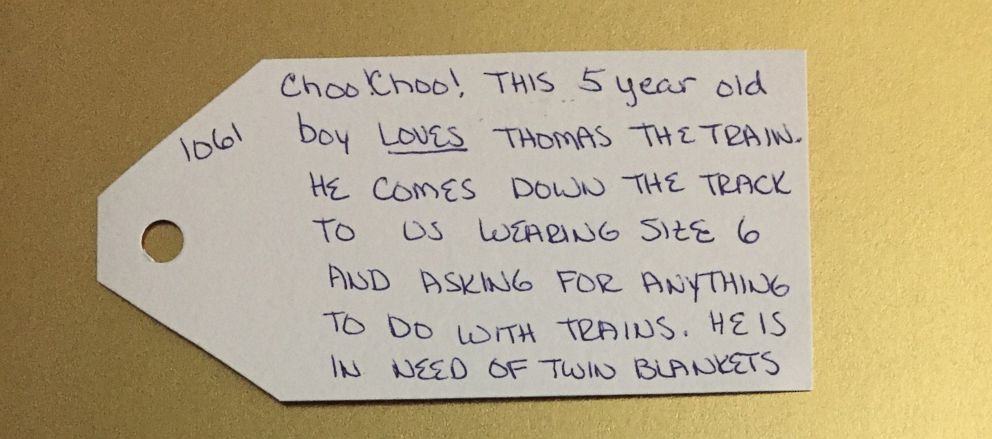 1061
Choo Choo! THIS 5 year old
boy LOVES THOMAS THE TRAIN.
HE COMES DOWN THE TRACK
TO US WEARING SIZE 6
AND ASKING FOR ANYTHING
TO DO WITH TRAINS. HE IS
IN NEED OF TWIN BLANKETS